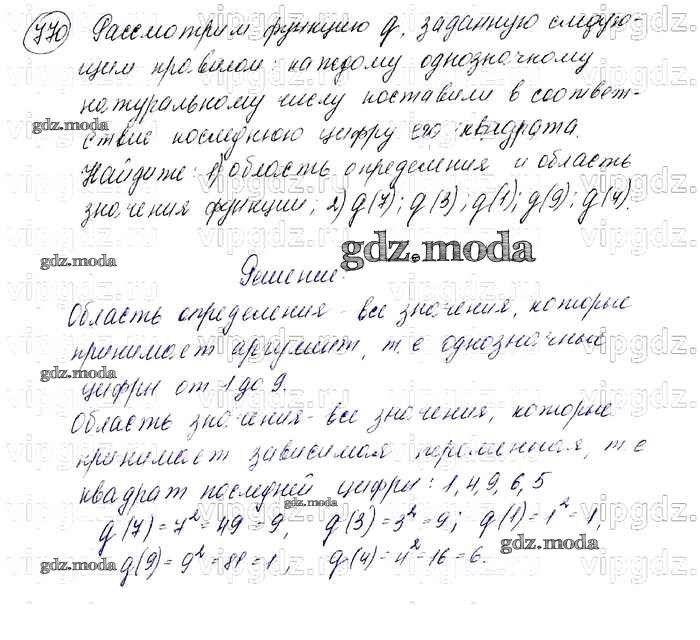 770 Рассмотрим функцию g, заданную следую-
щим правилом: каждому однозначному
натуральному числу поставили в соответ-
ствие последнюю цифру его квадрата.
Найдите: 1) область определения и область
значения функции; 2) g(7); g(3); g(1); g(9); g(4).
Решение:
Область определения - все значения, которые
принимает аргумент, т.е однозначные
цифры от 1 до 9.
Область значения - все значения, которые
принимает зависимая переменная, т.е
квадрат последней цифры: 1, 4, 9, 6, 5
g(7) = 7² = 49 = 9, g(3) = 3² = 9; g(1) = 1² = 1,
g(9) = 9² = 81 = 1, g(4) = 4² = 16 = 6.
gdz.moda
gdz.moda
gdz.moda
gdz.moda
gdz.moda
gdz.moda
gdz.moda